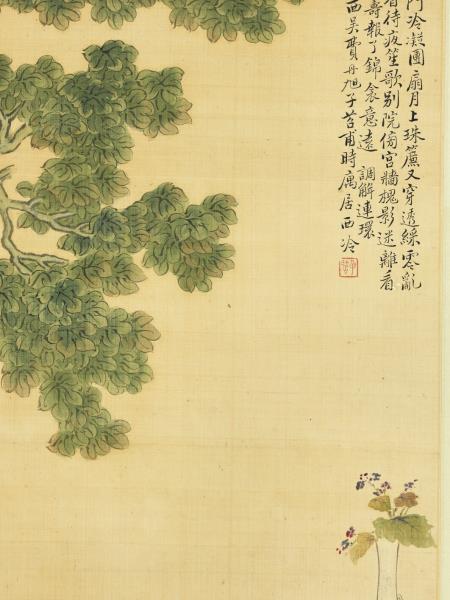 冷凝團扇月上珠簾又穿透綵零亂
待疲笙歌別院傍宮牆槐影迷離看
壽報了錦衾意遠 調解連環
西吴費丹旭子苕甫時寓居西泠